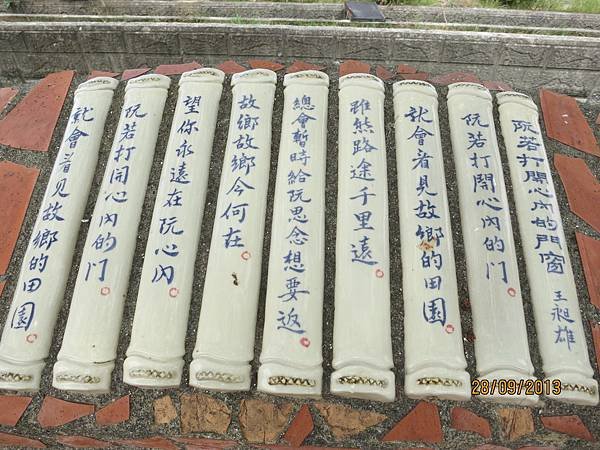 阮若打開心內的門窗 王昶雄
阮若打開心內的門
就會看見故鄉的田園
雖然路途千里遠
總會暫時給阮思念想要返
故鄉故鄉今何在
望你永遠在阮心內
阮若打開心內的門
就會看見故鄉的田園
28/09/2013